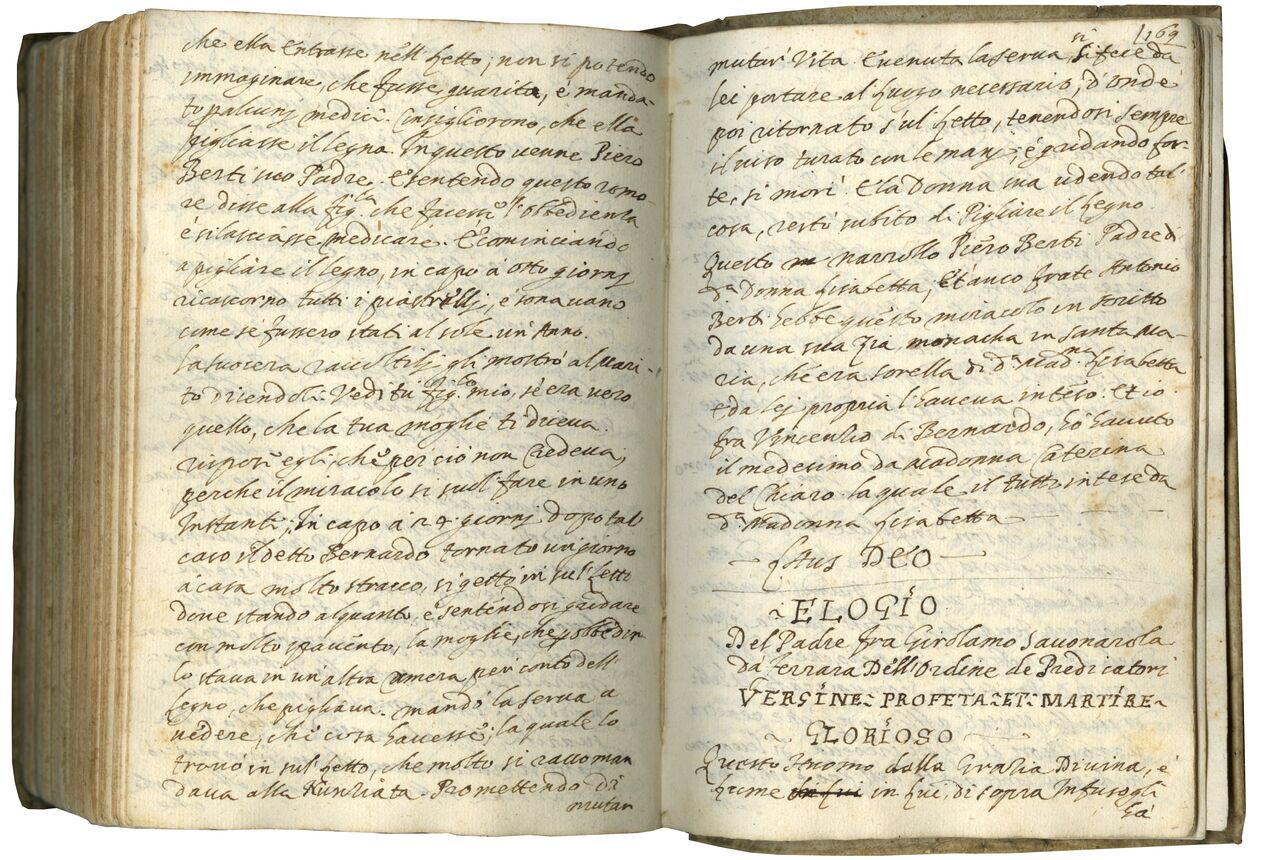 che ella Entrasse nell' Letto; non si potendo
immaginare, che fusse guarita, é manda-
to pal cunj medici. Consigliorono, che ella
pigliasse il legno. In questo uenne Piero
Berti suo Padre, E sentendo questo romo-
re disse alla fig.la che facesse l'obbedienza
é si lasciasse medicare. E cominciando
a pigliare il legno, in capo á otto giornj
ricascorno tutti i piastrellj, e sonauano
come se fussero stati al sole un' Anno.
La suocera raccoltilj gli mostró al Mari-
to dicendoli. Vedi tu fig.lo mio, s'é era uero
quello, che la tua moglie ti diceua.
rispose egli, che per ció non Credeua,
perche il miracolo si suol' fare in uno
Instanti; In capo á 29 giornj dopo tal
caso il detto Bernardo tornato un giorno
á casa molto stracco, si gettó in sul' Letto
doue stando alquanto, e sentendosi gridare
con molto spauento, la moglie, che
lo staua in un' altra Camera, per conto dell'
Legno, che pigliaua. mandó la serua a
uedere, che cosa hauesse; la quale lo
trouó in sul' Letto, che molto si raccoman
daua alla Nunziata. Promettendo di
mutar
1169
mutar' Vita. E uenuta la serua si fece da
lei portare al luogo necessario, d' onde
poi ritornato s'ul Letto, tenendosi sempre
il uiso turato con le manj; é gridando for-
te, si morí. E la Donna sua udendo tal'
cosa, restó subito di Pigliare il Legno.
Questo narrollo Piero Berti Padre di
d.a Donna Lisabetta, Et anco frate Antonio
Berti hebbe questo miracolo in scritto
da una sua Zia monacha in Santa Ma-
ria, che era sorella di d.a Mad.na Lisabetta
e da lej propria l'haueua inteso. Et io
fra Vincenzio di Bernardo, hó hauuto
il medesimo da Madonna Caterina
del Chiaro la quale il tutto intese da
d.a Madonna Lisabetta
DEO
ELOGIO
Del Padre fra Girolamo Sauonarola
da Ferrara Dell' Ordine de Predicatori
VERGINE PROFETA ET MARTIRE
GLORIOSO
Questo della Grazia Diuina, é
Lume in Lui, di sopra